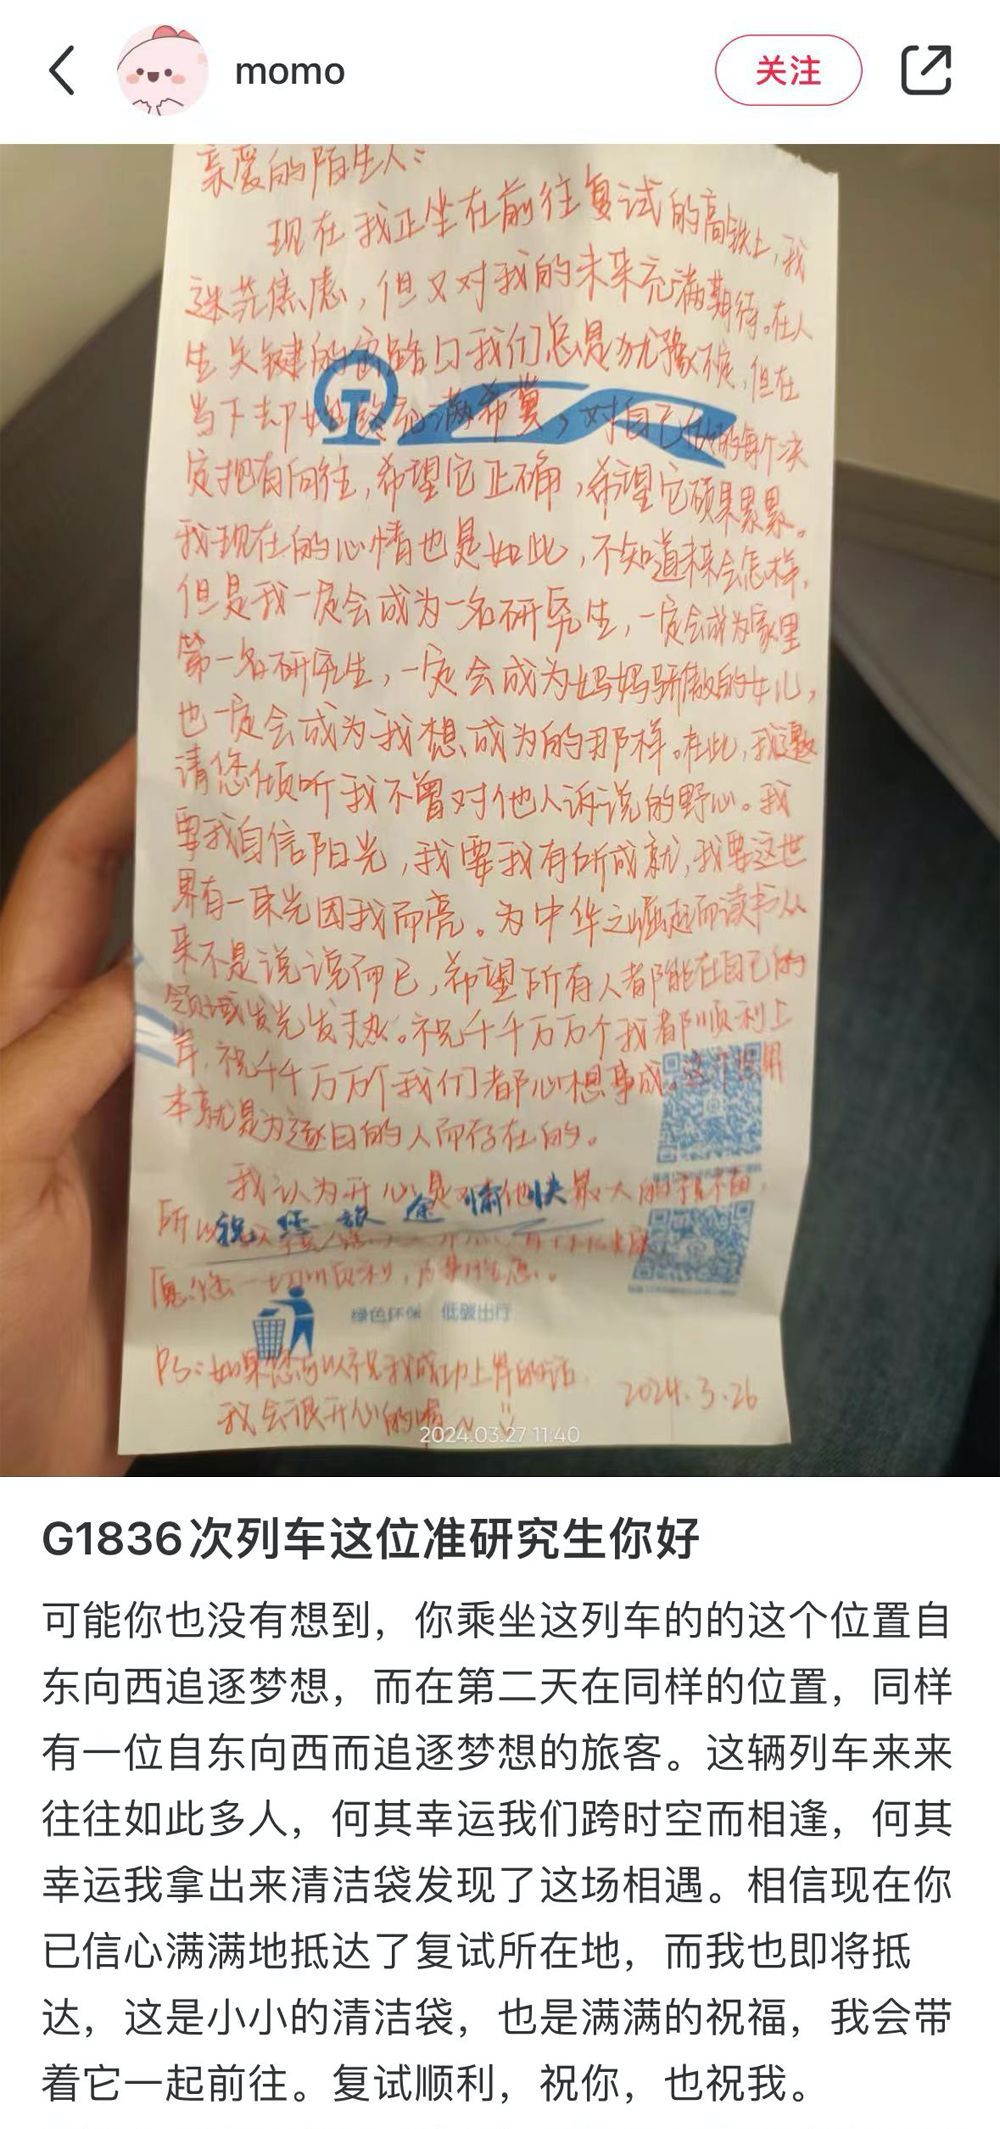 momo
关注
亲爱的陌生人：
现在我正坐在前往复试的高铁上，我
迷茫焦虑，但又对我的未来充满期待。在人
生关键的岔路口我们总是犹豫不定，但在
当下却始终充满希冀，对自己做的每个决
定抱有向往，希望它正确，希望它硕果累累。
我现在的心情也是如此，不知道未来会怎样，
但是我一定会成为一名研究生，一定会成为家里
第一名研究生，一定会成为妈妈骄傲的女儿，
也一定会成为我想成为的那样。在此，我邀
请您倾听我不曾对他人诉说的野心。我
要我自信阳光，我要我有所成就，我要这世
界有一束光因我而亮。为中华之崛起而读书从
来不是说说而已，希望所有人都能在自己的
领域发光发热。祝千千万万个我都顺利上
岸，祝千千万万个我们都心想事成。这个
本就是为逐日的人而存在的。
我认为开心是对其他最大的
所以
祝您旅途愉快
愿您一切顺利，
绿色环保 低碳出行
PS：如果您可以祝我成功上岸的话
我会很开心的喔~
2024.3.26
2024.03.27 11:40
G1836次列车这位准研究生你好
可能你也没有想到，你乘坐这列车的的这个位置自
东向西追逐梦想，而在第二天在同样的位置，同样
有一位自东向西而追逐梦想的旅客。这辆列车来来
往往如此多人，何其幸运我们跨时空而相逢，何其
幸运我拿出来清洁袋发现了这场相遇。相信现在你
已信心满满地抵达了复试所在地，而我也即将抵
达，这是小小的清洁袋，也是满满的祝福，我会带
着它一起前往。复试顺利，祝你，也祝我。